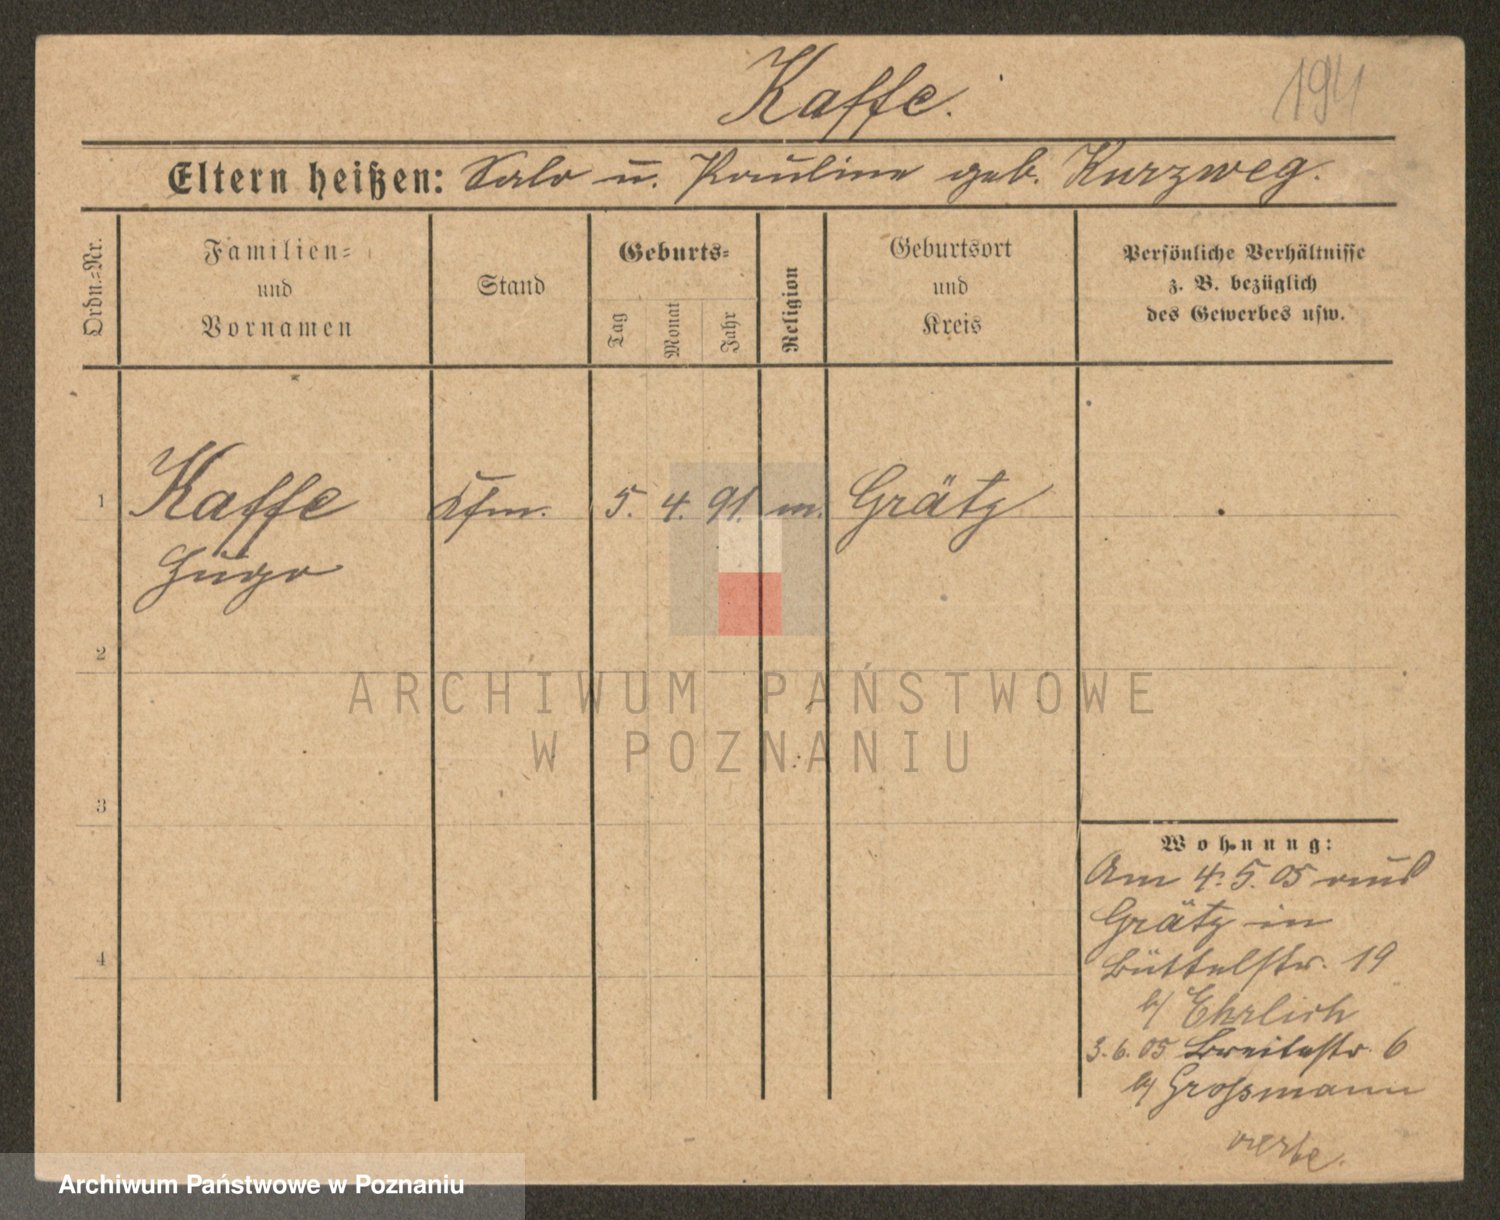 Kaffe.
194
Eltern heißen: Salo u. Pauline geb. Kurzweg.
Ordn.-Nr.
Familien-
und
Vornamen
Stand
Geburts-
Tag
Monat
Jahr
Religion
Geburtsort
und
Kreis
Persönliche Verhältnisse
z. B. bezüglich
des Gewerbes usw.
1 Kaffe Kfm. 5. 4. 91. m. Grätz
Hugo
2
3
4
Wohnung:
Am 4. 5. 05 aus
Grätz in
Büttelstr. 19
b/ Ehrlich
3. 6. 05 Breitestr. 6
b/ Grossmann
ARCHIWUM PAŃSTWOWE
W POZNANIU
Archiwum Państwowe w Poznaniu